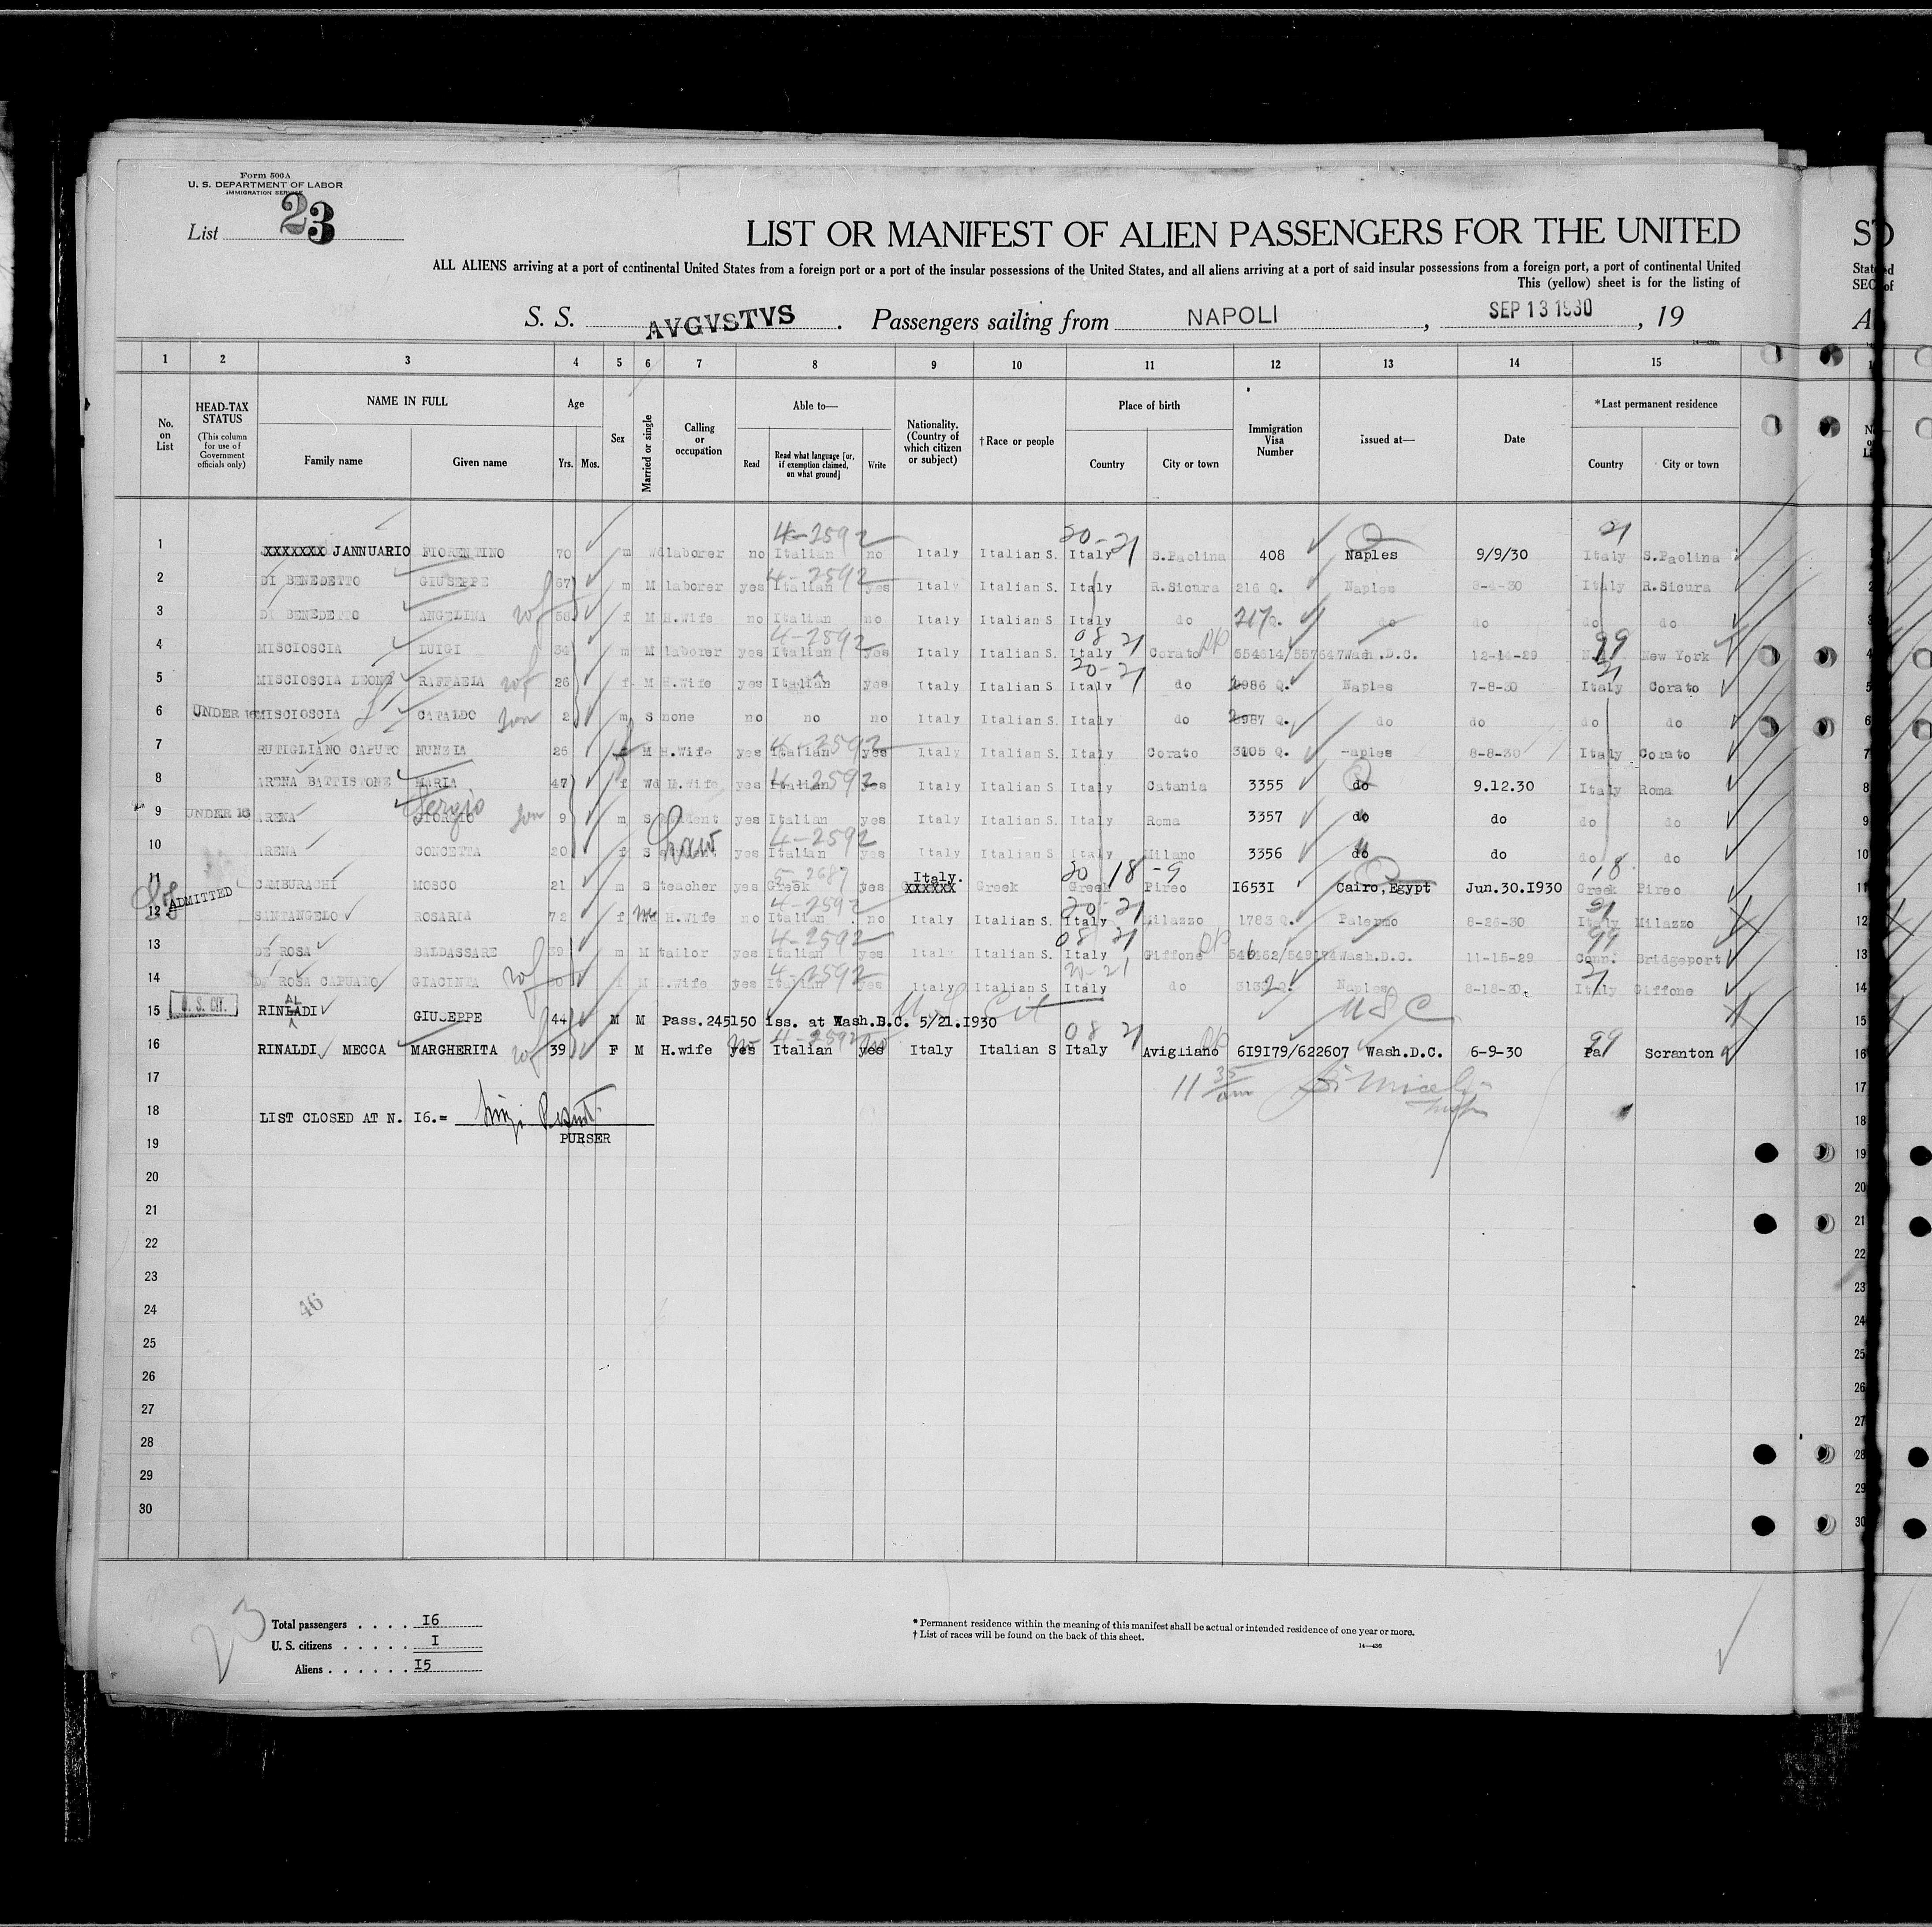 Form 500A
U. S. DEPARTMENT OF LABOR
IMMIGRATION SERVICE
List 23
LIST OR MANIFEST OF ALIEN PASSENGERS FOR THE UNITED
ALL ALIENS arriving at a port of continental United States from a foreign port or a port of the insular possessions of the United States, and all aliens arriving at a port of said insular possessions from a foreign port, a port of continental United
This (yellow) sheet is for the listing of
S. S. AVGVSTVS . Passengers sailing from NAPOLI , SEP 13 1930 , 19
1 2 3 4 5 6 7 8 9 10 11 12 13 14 15
No. on List
HEAD-TAX STATUS (This column for use of Government officials only)
NAME IN FULL Family name Given name
Age Yrs. Mos.
Sex
Married or single
Calling or occupation
Able to— Read Read what language [or, if exemption claimed, on what ground] Write
Nationality. (Country of which citizen or subject)
†Race or people
Place of birth Country City or town
Immigration Visa Number
Issued at—
Date
*Last permanent residence Country City or town
4-2592 20-21 21
1 XXXXXXX JANNUARIO FIORENTINO 70 m Wd laborer no Italian no Italy Italian S. Italy S.Paolina 408 Naples 9/9/30 Italy S.Paolina
4-2592
2 DI BENEDETTO GIUSEPPE 67 m M laborer yes Italian yes Italy Italian S. Italy R.Sicura 216 Q. Naples 8-4-30 Italy R.Sicura
3 DI BENEDETTO ANGELINA wf 58 f M H.Wife no Italian no Italy Italian S. Italy do 217 Q. do do do do
4-2592 08 21 99
4 MISCIOSCIA LUIGI 34 m M laborer yes Italian yes Italy Italian S. Italy Corato 554614/557647 Wash.D.C. 12-14-29 New York
20-21 21
5 MISCIOSCIA LEONE RAFFAELA wf 26 f M H.Wife yes Italian yes Italy Italian S Italy do 2986 Q. Naples 7-8-30 Italy Corato
6 UNDER 16 MISCIOSCIA CATALDO son 2 m S none no no no Italy Italian S. Italy do 2987 Q. do do do do
4-2592
7 RUTIGLIANO CAPUTO NUNZIA 26 f M H.Wife yes Italian yes Italy Italian S. Italy Corato 3105 Q. -aples 8-8-30 Italy Corato
4-2592
8 ARENA BATTISTONE MARIA 47 f Wd H.Wife yes Italian yes Italy Italian S. Italy Catania 3355 do 9.12.30 Italy Roma
Sergio
9 UNDER 16 ARENA GIORGIO son 9 m S student yes Italian yes Italy Italian S. Italy Roma 3357 do do do do
4-2592
10 ARENA CONCETTA 20 f S yes Italian yes Italy Italian S Italy Milano 3356 do do do do
5-2687 Italy. 20 18-9 18
11 CAMBURACHI MOSCO 21 m S teacher yes Greek yes XXXXXX Greek Greek Pireo I653I Cairo,Egypt Jun.30.I930 Greek Pireo
ADMITTED 4-2592 20-21 21
12 SANTANGELO ROSARIA 72 f Wd H.Wife no Italian no Italy Italian S. Italy Milazzo 1783 Q. Palermo 8-26-30 Italy Milazzo
4-2592 08 21 99
13 DE ROSA BALDASSARE 39 m M tailor yes Italian yes Italy Italian S. Italy Giffone Wash.D.C. 11-15-29 Conn. Bridgeport
4-2592 20-21 21
14 DE ROSA CAPUANO GIACINTA wf 30 f M H.Wife yes Italian yes Italy Italian S Italy do 3132 Q. Naples 8-18-30. Italy Giffone
U. S. CIT. AL U S Cit U S C
15 RINLADI GIUSEPPE 44 M M Pass.245I50 iss. at Wash.D.C. 5/21.I930
no 4-2592 no 08 21 99
16 RINALDI MECCA MARGHERITA wf 39 F M H.wife yes Italian yes Italy Italian S Italy Avigliano 6I9I79/622607 Wash.D.C. 6-9-30 Pa Scranton
17 11 35 am
18 LIST CLOSED AT N. I6.=
19 PURSER
20
21
22
23
24 46
25
26
27
28
29
30
23
Total passengers . . . . I6
U. S. citizens . . . . . I
Aliens . . . . . . I5
* Permanent residence within the meaning of this manifest shall be actual or intended residence of one year or more.
† List of races will be found on the back of this sheet.
14—430